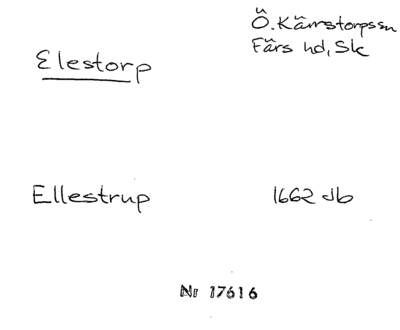 Ö. Kärrstorps sn
Färs hd, Sk
Elestorp
Ellestrup 1662 jb
Nr 17616